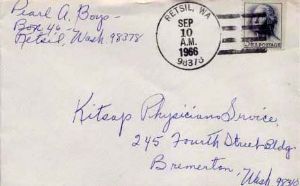 Pearl A. Boyo-
Box 46 -
Retsil, Wash 98378
RETSIL, WA
SEP
10
A.M.
1966
98378
U.S. POSTAGE
Kitsap Physicians Service,
245 Fourth Street Bldg.
Bremerton,
Wash